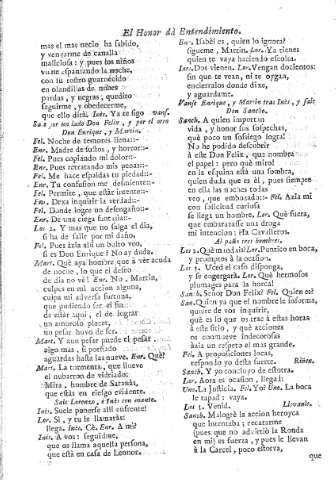 El Honor dà Entendimiento.
mas el mas necio ha sabido,
y vengarme de canalla
maliciosa; y pues los niños
vanse espantando la noche,
con su rostro guarnecido
en olandillas de nubes
pardas, y negras, quedito
seguirme, y obedecerme,
que ello dirà. Inès. Ya te sigo vanse.
Sale por un lado Don Felix, y por el otro
Don Enrique, y Martin.
Fel. Noche de temores llena:-
Enr. Madre de sustos, y horror:-
Fel. Pues copiando mi dolor:-
Enr. Pues retratando mis penas:-
Fel. Me hace espaldas tu piedad:-
Enr. Tu confusion me desmiente:-
Fel. Permite, que estàr intente:-
Enr. Dexa inquirir la verdad:-
Fel. Donde logre un desengaño:-
Enr. De una ciega fantasia:-
Los 2. Y mas que no salga el dia,
si ha de salir por mi daño.
Fel. Pues àzia allí un bulto veo,
si es Don Enrique? No ay duda.
Mart. Què aya hombre, que à vèr acuda
de noche, lo que el deseo
de dia no vè! Enr. No, Martin,
culpes en mi accion alguna,
culpa mi adversa fortuna,
que pudiendo ser
de estàr aqui, el de lograr
un amoroso placer,
un pesar huvo de ser.
Mart. Y aun pesar puede el pesar
algo mas, si portado
aguardas hasta las nueve. Enr. Què?
Mart. La tormenta, que llueve
el nubarron de vidriado:
Mira, hombre de Satanàs,
que estàs en riesgo evidente.
Sale Lorenzo, è Inès con manto.
Inès. Suele ponerse assi enfrente!
Lor. Sì, y tu la llamaràs:
llega. Inès. Cè. Enr. A mi?
Inès. A vos: seguidme,
que os llama aquella persona,
que està en casa de Leonor.
Enr. Isabèl es, quien lo ignora?
sigueme, Martin. Lor. Ya tienes
quien te vaya haciendo escolta.
Lor. Dos vienen. Lor. Vengan docientos:
sin que te vean, ni te oygan,
encierralos donde dixe,
y aguardame.
Vanse Enrique, y Martin tras Inès, y sale
Don Sancho.
Sanch. A quien importan
vida, y honor sus sospechas,
què poco un sossiego logra!
No he podido descubrir
à este Don Felix, que nombra
el papel: pero què miro!
en la esquina està una sombra,
quien dudarà que es èl, pues siempre
en ella las noches todas
veo, que embozado:- Fel. Azia mi
con solicitud curiosa
se llega un hombre. Lor. Què fuera,
que embarazasse una droga
mi intencion! Ha Cavalleros.
Al paño tres hombres.
Los 2. Què mandais? Lor. Punzico en boca,
y promptos à la ocasion.
Los 3. Usted el caso disponga,
y se engergarà. Lor. Què hermosos
plumages para la horca!
Sanch. Señor Don Felix? Fel. Quien es?
San. Quien ya que el nombre le informa,
quiere de vos inquirir,
què es lo que os trae à estas horas
à este sitio, y què acciones
os conmueven indecorosas
àzia un respeto el mas grande.
Fel. A proposiciones locas,
respondo yo desta suerte. Riñen.
Sanch. Y yo concluyo de estotra.
Lor. Aora es ocasion, llegad:
Uno. La Justicia. Fel. Yo? Uno. La boca
le tapad: vaya.
Los 3. Venid. Llevanle.
Sanch. Malogrè la accion heroyca
que intentaba; recatarme
(pues que no advirtiò la Ronda
en mi) es fuerza, y pues le llevan
à la Carcel, poco estorva,
que